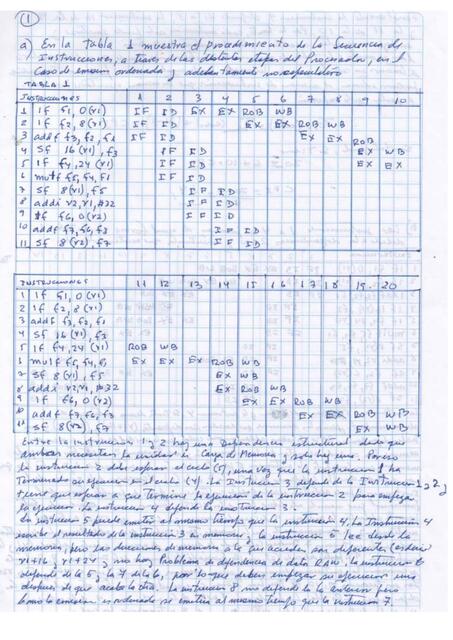 1
a) En la tabla 1 muestra el procedimiento de la Secuencia de
Instrucciones, a traves de las distintas etapas del Procesador, en el
Caso de emision ordenada y adelantamiento no especulativo
TABLA 1
Instrucciones 1 2 3 4 5 6 7 8 9 10
1 lf f1, 0(r1) IF ID EX EX ROB WB
2 lf f2, 8(r1) IF ID EX EX ROB WB
3 addf f3, f2, f1 IF ID EX EX ROB
4 sf 16(r1), f3 IF ID EX WB
5 lf f4, 24(r1) IF ID EX EX
6 multf f5, f4, f1 IF ID
7 sf 8(r1), f5 IF ID
8 addi r2, r1, #32 IF ID
9 lf f6, 0(r2) IF ID
10 addf f7, f6, f3 IF ID
11 sf 8(r2), f7 IF ID
Instrucciones 11 12 13 14 15 16 17 18 19 20
1 lf f1, 0(r1)
2 lf f2, 8(r1)
3 addf f3, f2, f1
4 sf 16(r1), f3
5 lf f4, 24(r1) ROB WB
6 mulf f5, f4, f1 EX EX EX ROB WB
7 sf 8(r1), f5 EX WB
8 addi r2, r1, #32 EX ROB WB
9 lf f6, 0(r2) EX EX ROB WB
10 addf f7, f6, f3 EX EX ROB WB
11 sf 8(r2), f7 EX WB
Entre la instrucciones 1 y 2 hay una Dependencia estructural dado que
ambas necesitan la unidad de Carga de Memoria y solo hay una. Por eso
la instruccion 2 debe esperar al ciclo (5), una vez que la instruccion 1 ha
Terminado su ejecucion en el ciclo (4). La Instruccion 3 depende de la Instruccion 1 y 2,
tiene que esperar a que termine la ejecucion de la instruccion 2 para empezar
la ejecucion. La instruccion 4 depende la instruccion 3.
La instruccion 5 puede emitir al mismo tiempo que la instruccion 4. La Instruccion 4
escribe el resultado de la instruccion 3 en memoria, la instruccion 5 lee desde la
memoria, pero las direcciones de memoria a la que acceden son diferentes
r1+16, r1+24, no hay Problema de dependencia de datos RAW. la instruccion 6
depende de la 5, la 7 de la 6, por lo que deben empezar su ejecucion una
despues de que acabe la otra. La instruccion 8 no depende de la anterior pero
como la emision es ordenada se emitira al mismo tiempo que la instruccion 7.